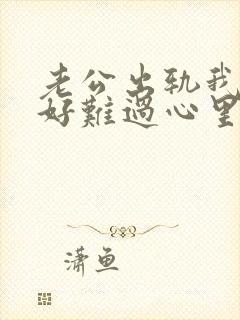 老公出轨我
好難過心里
潇鱼